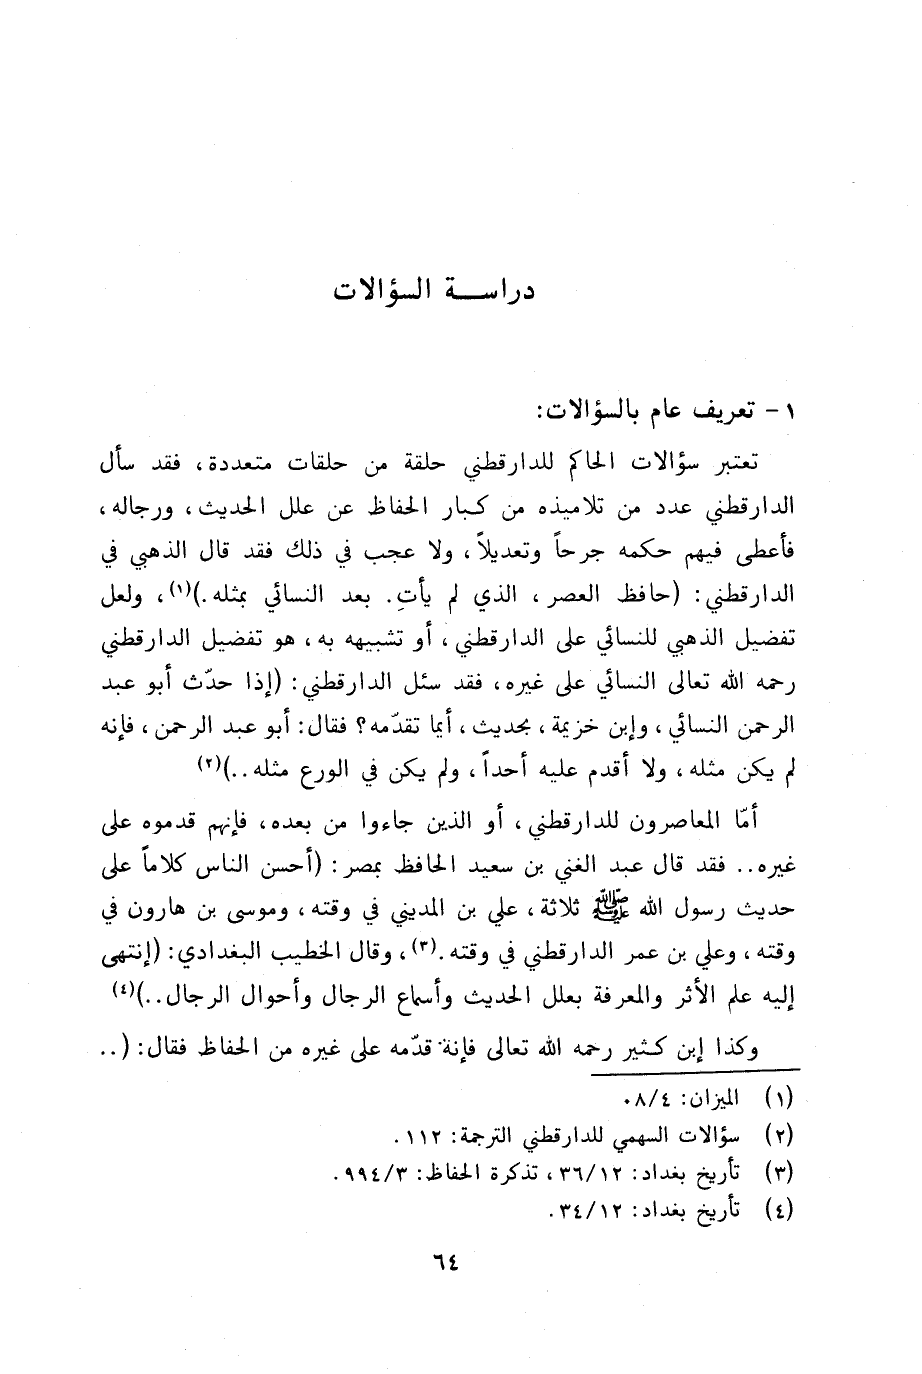 دراســـة السؤالات
١ - تعريف عام بالسؤالات:
تعتبر سؤالات الحاكم للدارقطني حلقة من حلقات متعددة، فقد سأل
الدارقطني عدد من تلاميذه من كبار الحفاظ عن علل الحديث، ورجاله،
فأعطى فيهم حكمه جرحاً وتعديلاً، ولا عجب في ذلك فقد قال الذهبي في
الدارقطني: (حافظ العصر، الذي لم يأتِ. بعد النسائي بمثله.)(١)، ولعل
تفضيل الذهبي للنسائي على الدارقطني، أو تشبيهه به، هو تفضيل الدارقطني
رحمه الله تعالى النسائي على غيره، فقد سئل الدارقطني: (إذا حدّث أبو عبد
الرحمن النسائي، وإبن خزيمة، بحديث، أيما تقدّمه؟ فقال: أبو عبد الرحمن، فإنه
لم يكن مثله، ولا أقدم عليه أحداً، ولم يكن في الورع مثله..)(٢)
أمّا المعاصرون للدارقطني، أو الذين جاءوا من بعده، فإنهم قدموه على
غيره.. فقد قال عبد الغني بن سعيد الحافظ بمصر: (أحسن الناس كلاماً على
حديث رسول الله ﷺ ثلاثة، علي بن المديني في وقته، وموسى بن هارون في
وقته، وعلي بن عمر الدارقطني في وقته.(٣)، وقال الخطيب البغدادي: (إنتهى
إليه علم الأثر والمعرفة بعلل الحديث وأسماع الرجال وأحوال الرجال..)(٤)
وكذا إبن كثير رحمه الله تعالى فإنة قدّمه على غيره من الحفاظ فقال: (..
(١) الميزان: ٠٨/٤
(٢) سؤالات السهمي للدارقطني الترجمة: ١١٢.
(٣) تأريخ بغداد: ٣٦/١٢، تذكرة الحفاظ: ٩٩٤/٣.
(٤) تأريخ بغداد: ٣٤/١٢.
٦٤